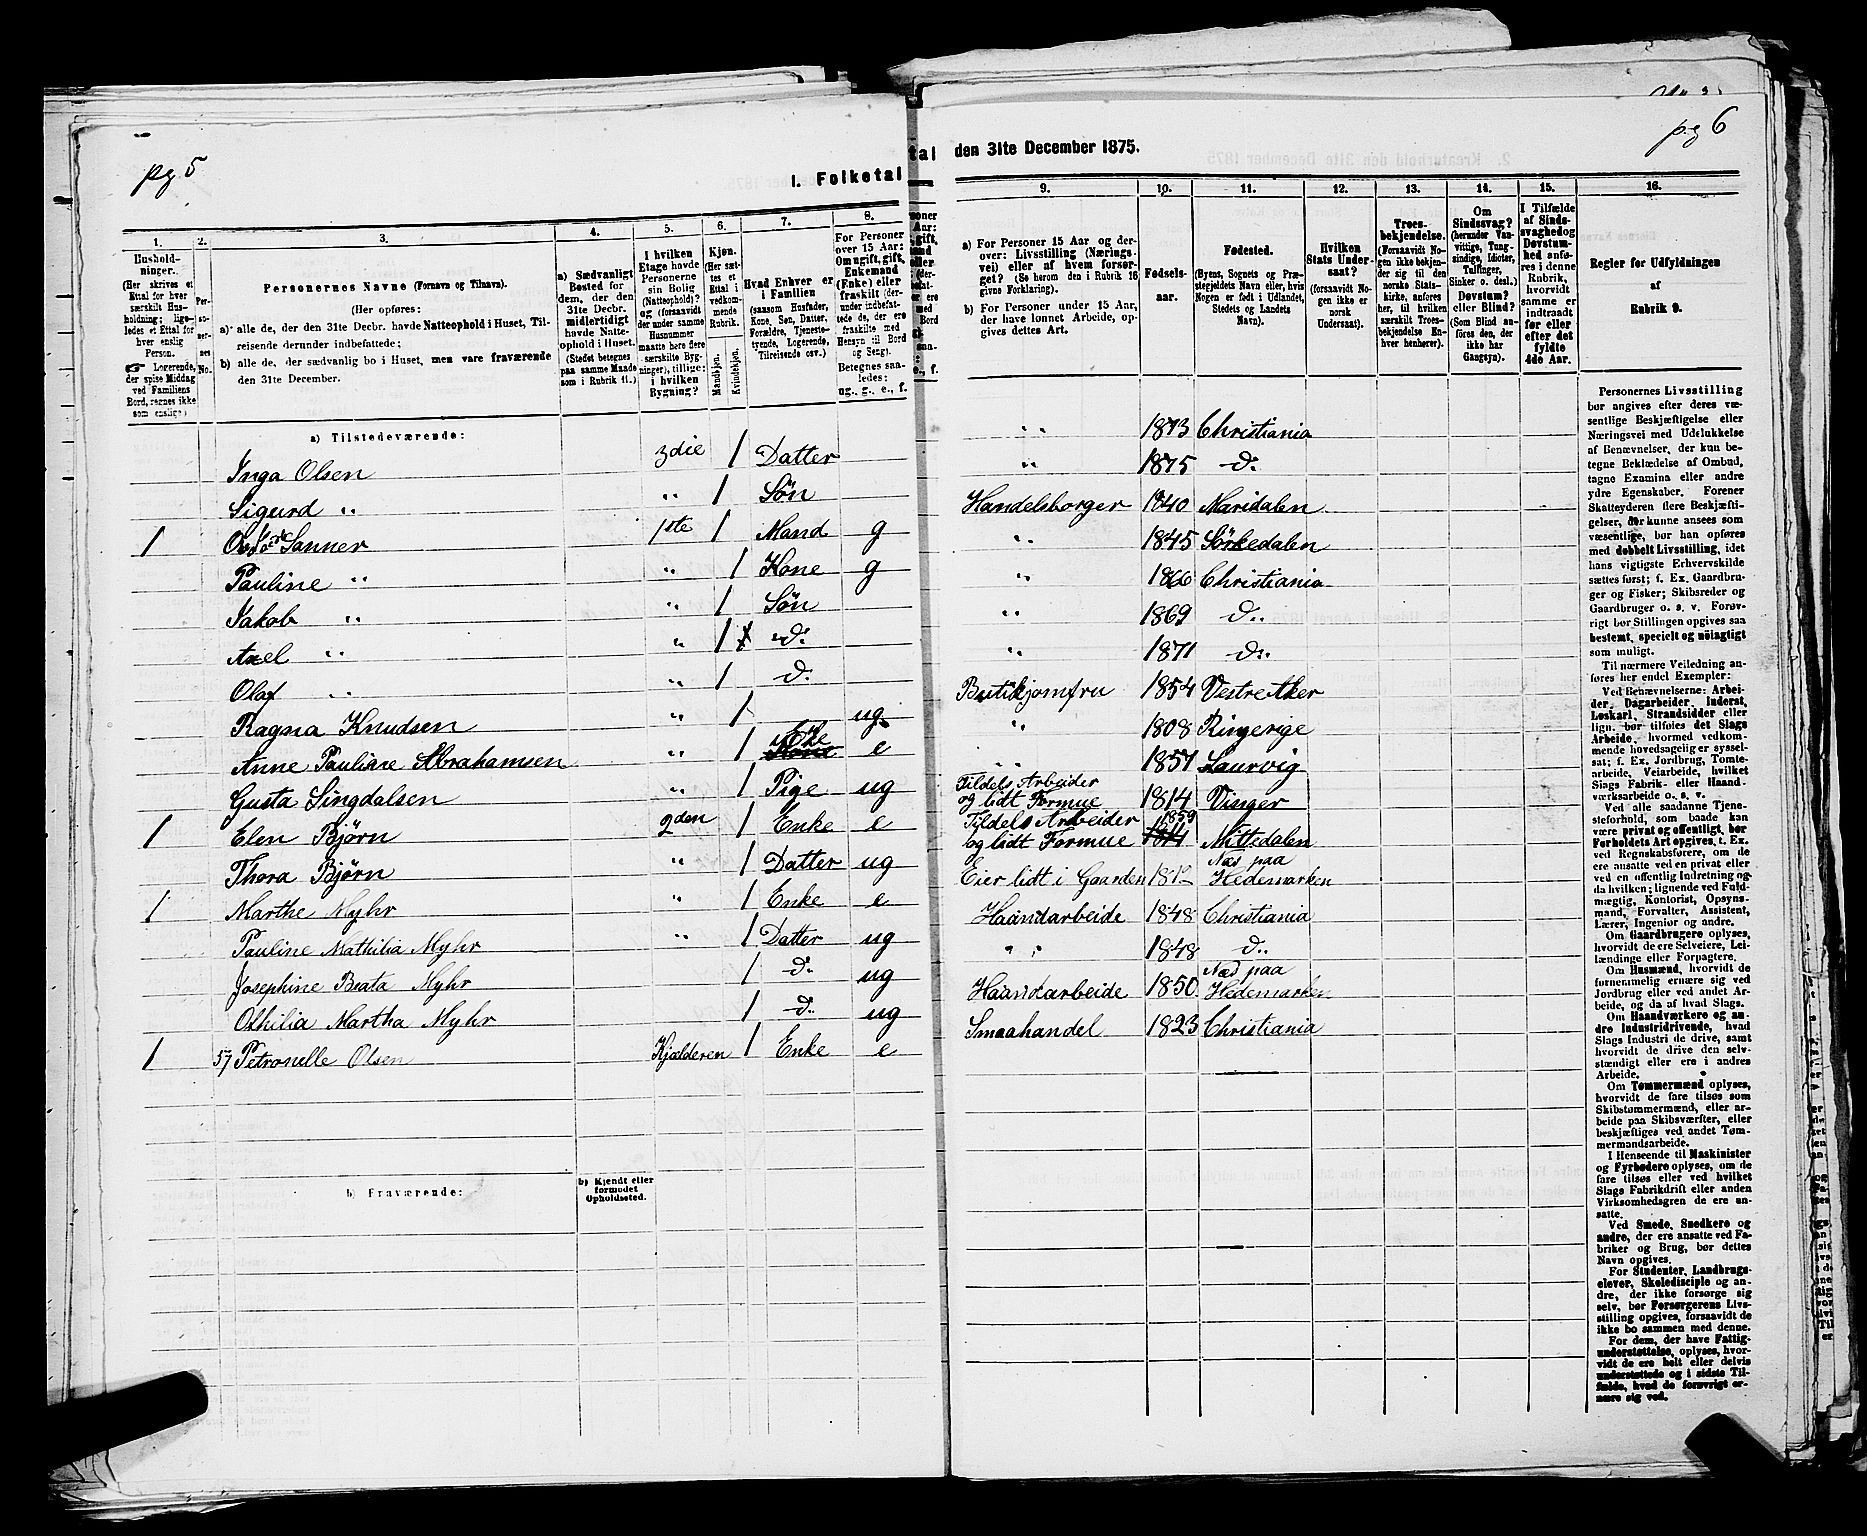 pg 5
1. Folketal
1.
2.
3.
4.
5.
6.
7.
8.
Husholdninger.
(Her skrives et
Ettal for hver
særskilt Husholdning; ligeledes
et Ettal for
hver enslig
Person.
Logerende,
der spise Middag
ved Familiens
Bord, regnes ikke
som enslige.)
Personernes No.
Personernes Navne (Fornavn og Tilnavn).
(Her opføres:
a) alle de, der den 31te Decbr. havde Natteophold i Huset, Tilreisende
derunder indbefattede;
b) alle de, der sædvanlig bo i Huset, men vare fraværende
den 31te December.
a) Sædvanligt
Bosted for
dem, der den
31te Decbr.
midlertidigt
havde Natteophold
i Huset.
(Stedet betegnes
paa samme Maade
som i Rubrik 11.)
I hvilken
Etage havde
Personerne
sin Bolig
(Natteophold)?
og (forsaavidt
der under samme
Husnummer
maatte høre flere
særskilte Bygninger),
tillige:
i hvilken
Bygning?
Kjøn.
(Her sættes
et
Ettal i
vedkommende
Rubrik.
Mandkjøn.
Kvindekjøn.
Hvad Enhver er
i Familien
(saasom Husfader,
Kone, Søn, Datter,
Forældre, Tjenestetyende,
Logerende,
Tilreisende osv.)
For Personer
over 15 Aar:
Om ugift, gift,
Enkemand
(Enke) eller
fraskilt (derunder
indbefattede
de, der ere
fraskilte med
Hensyn til Bord
og Seng).
Betegnes saaledes:
ug., g., e., f.
a) Tilstedeværende:
Inga Olsen 3die 1 Datter
Sigurd " " 1 Søn
1 Sanner 1ste 1 Mand g
Pauline " " 1 Kone g
Jakob " " 1 Søn
Axel " " 1 do
Olaf " " 1 do
Ragna Knudsen " 1 ug
Anne Pauline Abrahamsen " 1 e
Gusta Singdalsen " 1 Pige ug
1 Elen Bjørn 2den 1 Enke e
Thora Bjørn " 1 Datter ug
1 Marthe Myhr " 1 Enke e
Pauline Mathilia Myhr " 1 Datter ug
Josephine Beata Myhr 1 do ug
Othilia Martha Myhr 1 do ug
1 57 Petronelle Olsen Kjælderen 1 Enke e
b) Fraværende:
b) Kjendt eller
formodet
Opholdssted.
pg 6
den 31te December 1875.
9.
10.
11.
12.
13.
14.
15.
16.
a) For Personer 15 Aar og derover:
Livsstilling (Næringsvei)
eller af hvem forsørget?
(Se herom den i Rubrik 16
givne Forklaring).
b) For Personer under 15 Aar,
der have lønnet Arbeide, opgives
dettes Art.
Fødselsaar.
Fødested.
(Byens, Sognets og Præstegjeldets
Navn eller, hvis
Nogen er født i Udlandet,
Stedets og Landets
Navn).
Hvilken
Stats Undersaat?
(forsaavidt Nogen
ikke er
norsk
Undersaat).
Troesbekjendelse.
(Forsaavidt Nogen
ikke bekjender
sig til den
norske Statskirke,
anføres
her, til hvilken
særskilt Troesbekjendelse
Enhver
henhører).
Om
Sindssvag?
(herunder Vanvittige,
Tungsindige,
Idioter,
Tullinger,
Sinker o. desl.)
Døvstum?
eller Blind?
(Som Blind anføres
den, der
ikke har
Gangsyn).
I Tilfælde
af Sindssvaghed
og
Døvstumhed
anføres
i denne
Rubrik,
hvorvidt
samme er
indtraadt
før eller
efter det
fyldte
4de Aar.
Regler for Udfyldningen
af
Rubrik 9.
" 1873 Christiania
" 1875 do
Handelsborger 1840 Maridalen
" 1845 Sørkedalen
" 1866 Christiania
" 1869 do
" 1871 do
Butikjomfru 1854 Vestre Aker
" 1808 Ringerige
" 1857 Laurvig
Tildels Arbeider
og lidt Formue 1814 Vinger
Tildels Arbeider 1859
og lidt Formue Nittedalen
Næs paa
Eier lidt i Gaarden Hedemarken
Haandarbeide 1848 Christiania
" " 1848 do
Næs paa
Haandarbeide 1850 Hedemarken
Smaahandel 1823 Christiania
Personernes Livsstilling
bør angives efter deres væsentlige
Beskjæftigelse eller
Næringsvei med Udelukkelse
af Benævnelser, der kun betegne
Beklædelse af Ombud,
tagne Examina eller andre
ydre Egenskaber. Forener
Skatteyderen flere Beskjæftigelser,
der kunne ansees som
væsentlige, bør han opføres
med dobbelt Livsstilling, idet
hans vigtigste Erhvervskilde
sættes først; f. Ex. Gaardbruger
og Fisker; Skibsreder og
Gaardbruger o. s. v. Forøvrigt
bør Stillingen opgives saa
bestemt, specielt og nøiagtigt
som muligt.
Til nærmere Veiledning anføres
her endel Exempler:
Ved Benævnelserne: Arbeider,
Dagarbeider, Inderst,
Løskarl, Strandsidder eller
lign. bør tilføies det Slags
Arbeide, hvormed vedkommende
hovedsagelig er sysselsat;
f. Ex. Jordbrug, Tomtearbeide,
Veiarbeide, hvilket
Slags Fabrik- eller Haandværksarbeide
o. s. v.
Ved alle saadanne Tjenesteforhold,
som baade kan
være privat og offentligt, bør
Forholdets Art opgives, t. Ex.
ved Regnskabsførere, om de
ere ansatte ved en privat eller
ved en offentlig Indretning og
da hvilken; lignende ved Fuldmægtig,
Kontorist, Opsynsmand,
Forvalter, Assistent,
Lærer, Ingeniør og andre.
Om Gaardbrugere oplyses,
hvorvidt de ere Selveiere, Leilændinge
eller Forpagtere.
Om Husmænd, hvorvidt de
fornemmelig ernære sig ved
Jordbrug eller ved andet Arbeide,
og da af hvad Slags.
Om Haandværkere og andre
Industridrivende, hvad
Slags Industri de drive, samt
hvorvidt de drive den selvstændigt
eller ere i andres
Arbeide.
Om Tømmermænd oplyses,
hvorvidt de fare tilsøs som
Skibstømmermænd, eller arbeide
paa Skibsværfter, eller
beskjæftiges ved andet Tømmermandsarbeide.
I Henseende til Maskinister
og Fyrbødere oplyses, om de
fare tilsøs eller ved hvilket
Slags Fabrikdrift eller anden
Virksomhedsgren de ere ansatte.
Ved Smede, Snedkere og
andre, der ere ansatte ved Fabriker
og Brug, bør dettes
Navn opgives.
For Studenter, Landbrugselever,
Skoledisciple og andre,
der ikke forsørge sig
selv, bør Forsørgerens Livsstilling
opgives, forsaavidt de
ikke bo sammen med denne.
For dem, der have Fattigunderstøttelse,
oplyses, hvorvidt
de ere helt eller delvis
understøttede og i sidste Tilfælde,
hvad de forøvrigt ernære
sig ved.